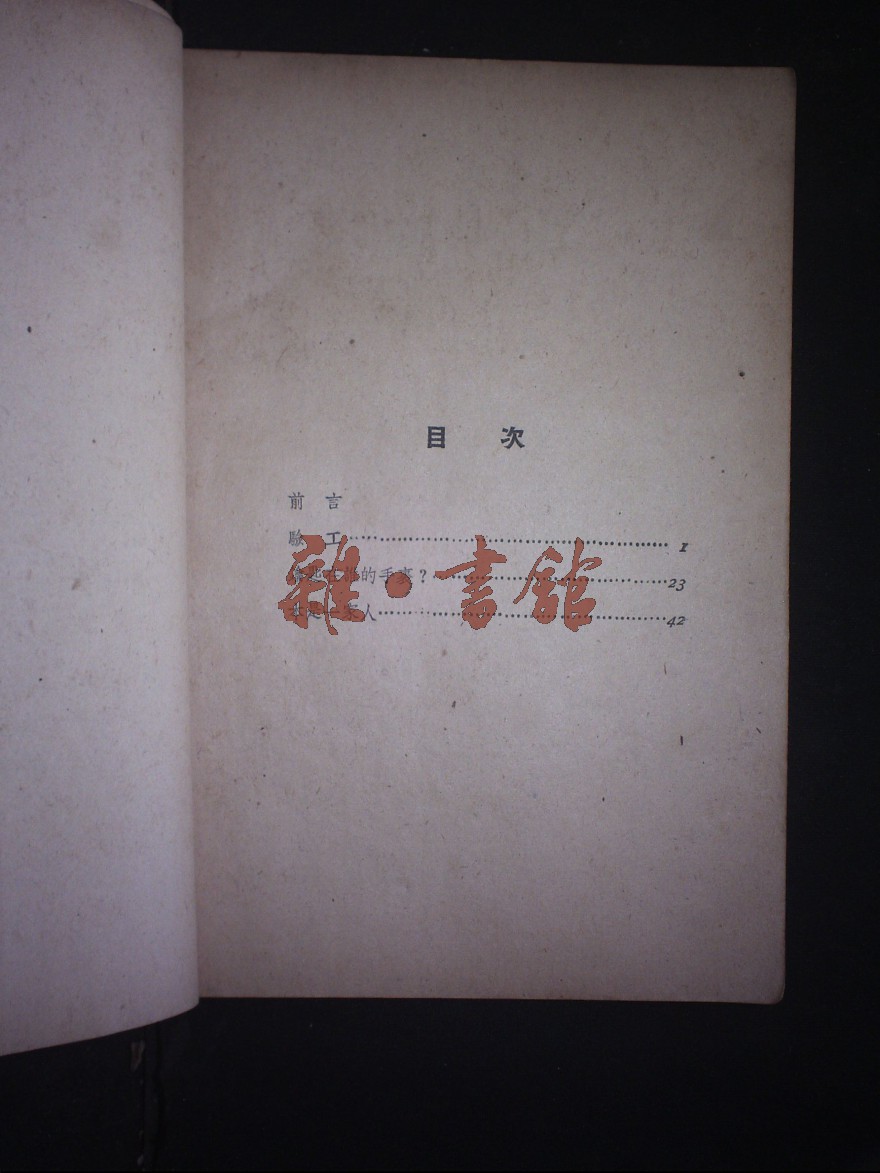 目 次
前 言
驗 工 1
的手裏? 23
人 42
雜·書館